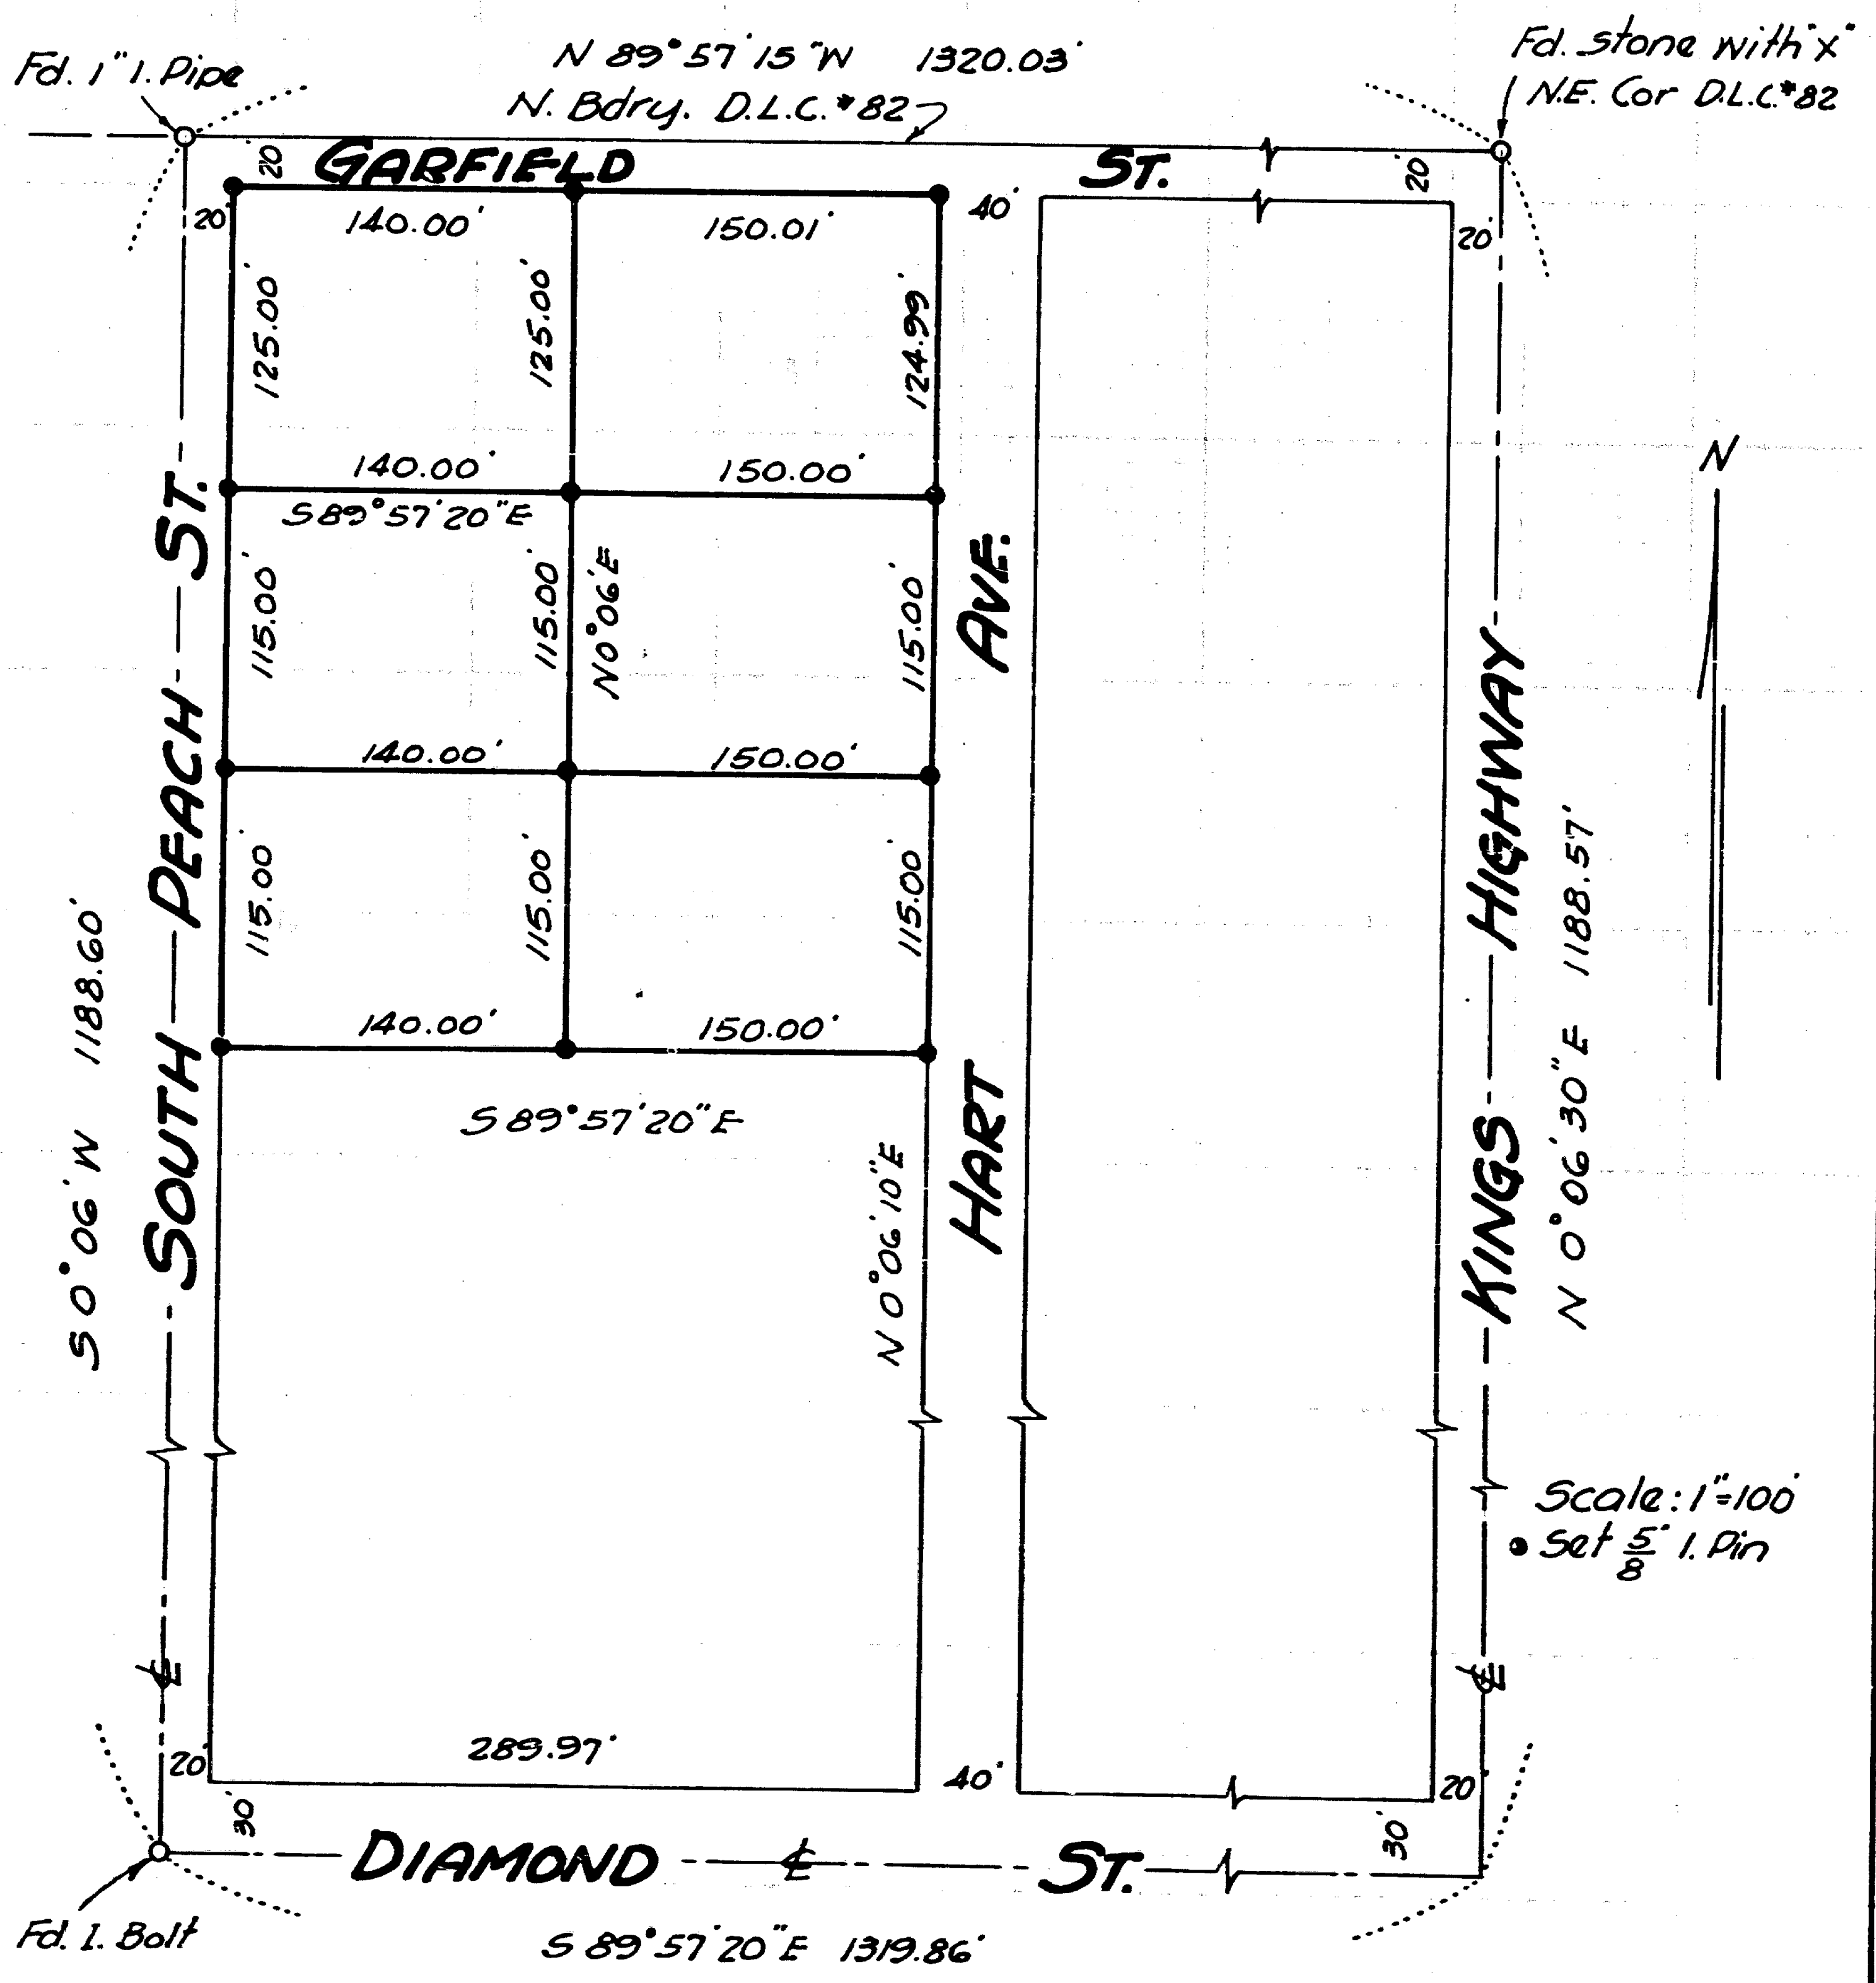 Fd. 1" I. Pipe
N 89° 57' 15" W 1320.03'
N. Bdry. D.L.C. #82
Fd. stone with "X"
N.E. Cor D.L.C. #82
20'
GARFIELD ST.
20'
20'
140.00'
150.01'
40'
20'
125.00'
125.00'
124.99'
140.00'
150.00'
S 89° 57' 20" E
N
115.00'
115.00'
N 0° 06' E
115.00'
140.00'
150.00'
115.00'
115.00'
115.00'
140.00'
150.00'
S 89° 57' 20" E
N 0° 06' 10" E
SOUTH PEACH ST.
S 0° 06' W 1188.60'
HART AVE.
KINGS HIGHWAY
N 0° 06' 30" E 1188.57'
Scale: 1"=100'
Set 5/8" I. Pin
℄
℄
289.97'
20'
40'
20'
30'
30'
DIAMOND ℄ ST.
Fd. I. Bolt
S 89° 57' 20" E 1319.86'